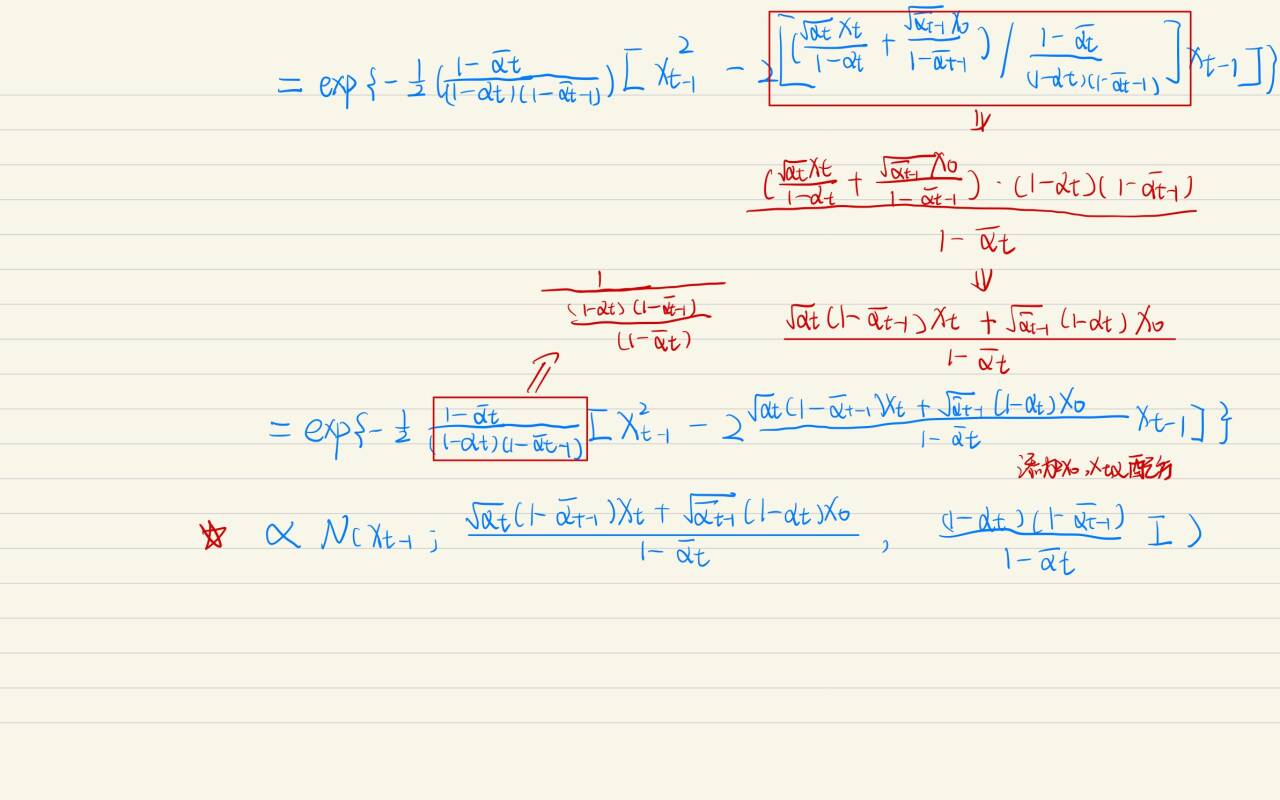 = exp{-½(\frac{1-\bar{α}t}{(1-αt)(1-\bar{α}t-1)})[x_{t-1}^2 - 2[(\frac{\sqrt{αt}xt}{1-αt} + \frac{\sqrt{\bar{α}t-1}x_0}{1-\bar{α}t-1}) / \frac{1-\bar{α}t}{(1-αt)(1-\bar{α}t-1)}]x_{t-1}]}
⇓
\frac{(\frac{\sqrt{αt}xt}{1-αt} + \frac{\sqrt{\bar{α}t-1}x_0}{1-\bar{α}t-1})·(1-αt)(1-\bar{α}t-1)}{1-\bar{α}t}
⇓
\frac{1}{\frac{(1-αt)(1-\bar{α}t-1)}{(1-\bar{α}t)}}
\frac{\sqrt{αt}(1-\bar{α}t-1)xt + \sqrt{\bar{α}t-1}(1-αt)x_0}{1-\bar{α}t}
⇗
= exp{-½(\frac{1-\bar{α}t}{(1-αt)(1-\bar{α}t-1)}[x_{t-1}^2 - 2\frac{\sqrt{αt}(1-\bar{α}t-1)xt + \sqrt{\bar{α}t-1}(1-αt)x_0}{1-\bar{α}t}x_{t-1}]}
添加x_0,xt以配方
☆ ∝ N(x_{t-1}; \frac{\sqrt{αt}(1-\bar{α}t-1)xt + \sqrt{\bar{α}t-1}(1-αt)x_0}{1-\bar{α}t}, \frac{(1-αt)(1-\bar{α}t-1)}{1-\bar{α}t}I)